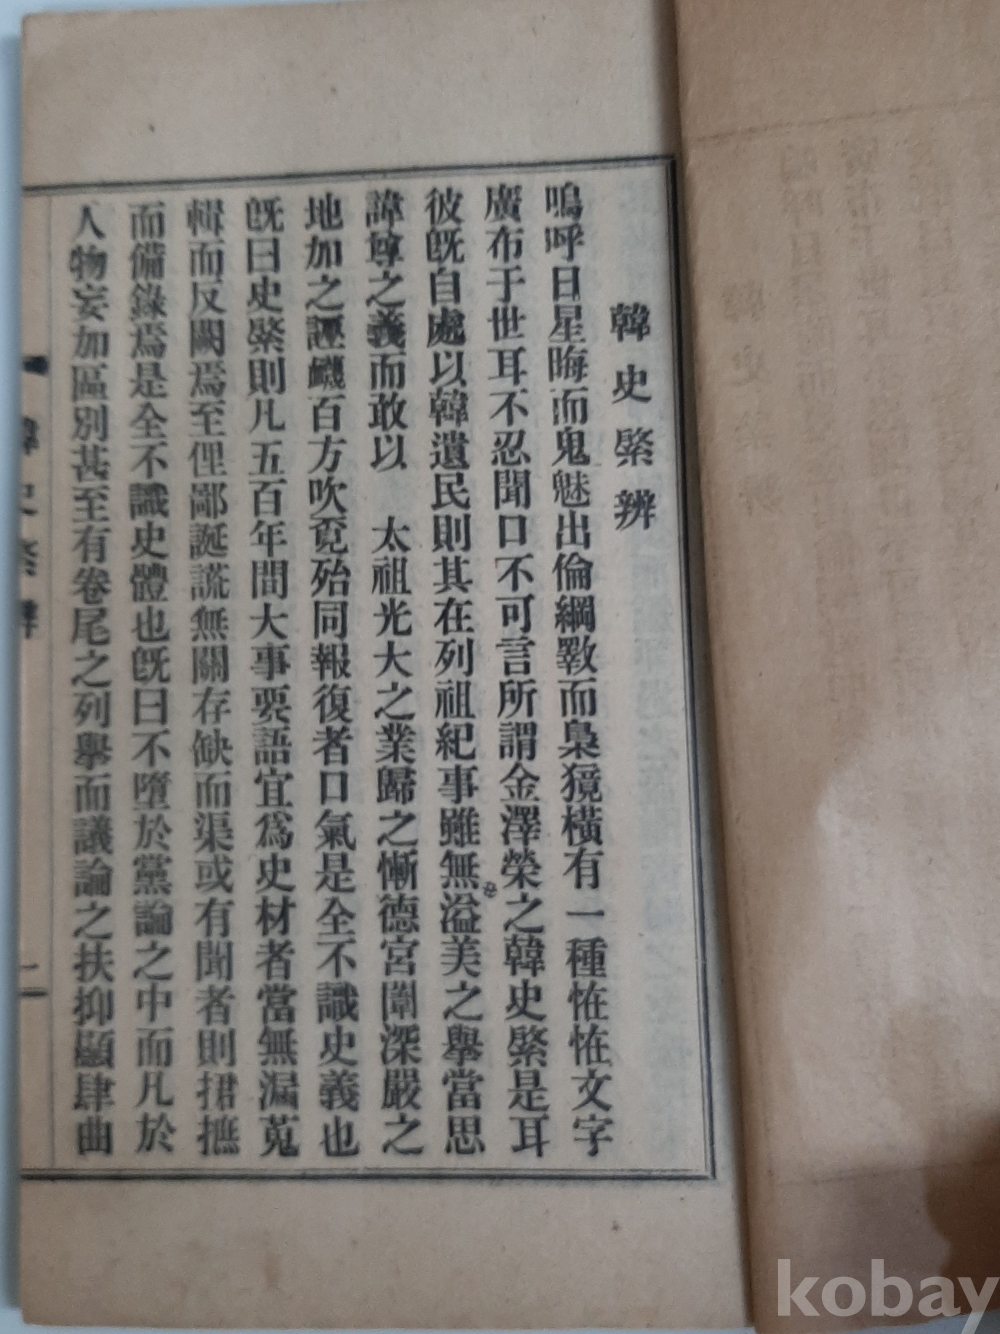 韓史綮辨
嗚呼日星晦而鬼魅出倫綱斁而梟獍橫有一種恠恠文字
廣布于世耳不忍聞口不可言所謂金澤榮之韓史綮是耳
彼旣自處以韓遺民則其在列祖紀事雖無溢美之擧當思
諱尊之義而敢以　太祖光大之業歸之慚德宮闈深嚴之
地加之誣衊百方吹覓殆同報復者口氣是全不識史義也
旣曰史綮則凡五百年間大事要語宜爲史材者當無漏蒐
輯而反闕焉至俚鄙誕謊無關存缺而渠或有聞者則捃摭
而備錄焉是全不識史體也旣曰不墮於黨論之中而凡於
人物妄加區別甚至有卷尾之列擧而議論之扶抑顯肆曲
韓史綮辨
kobay